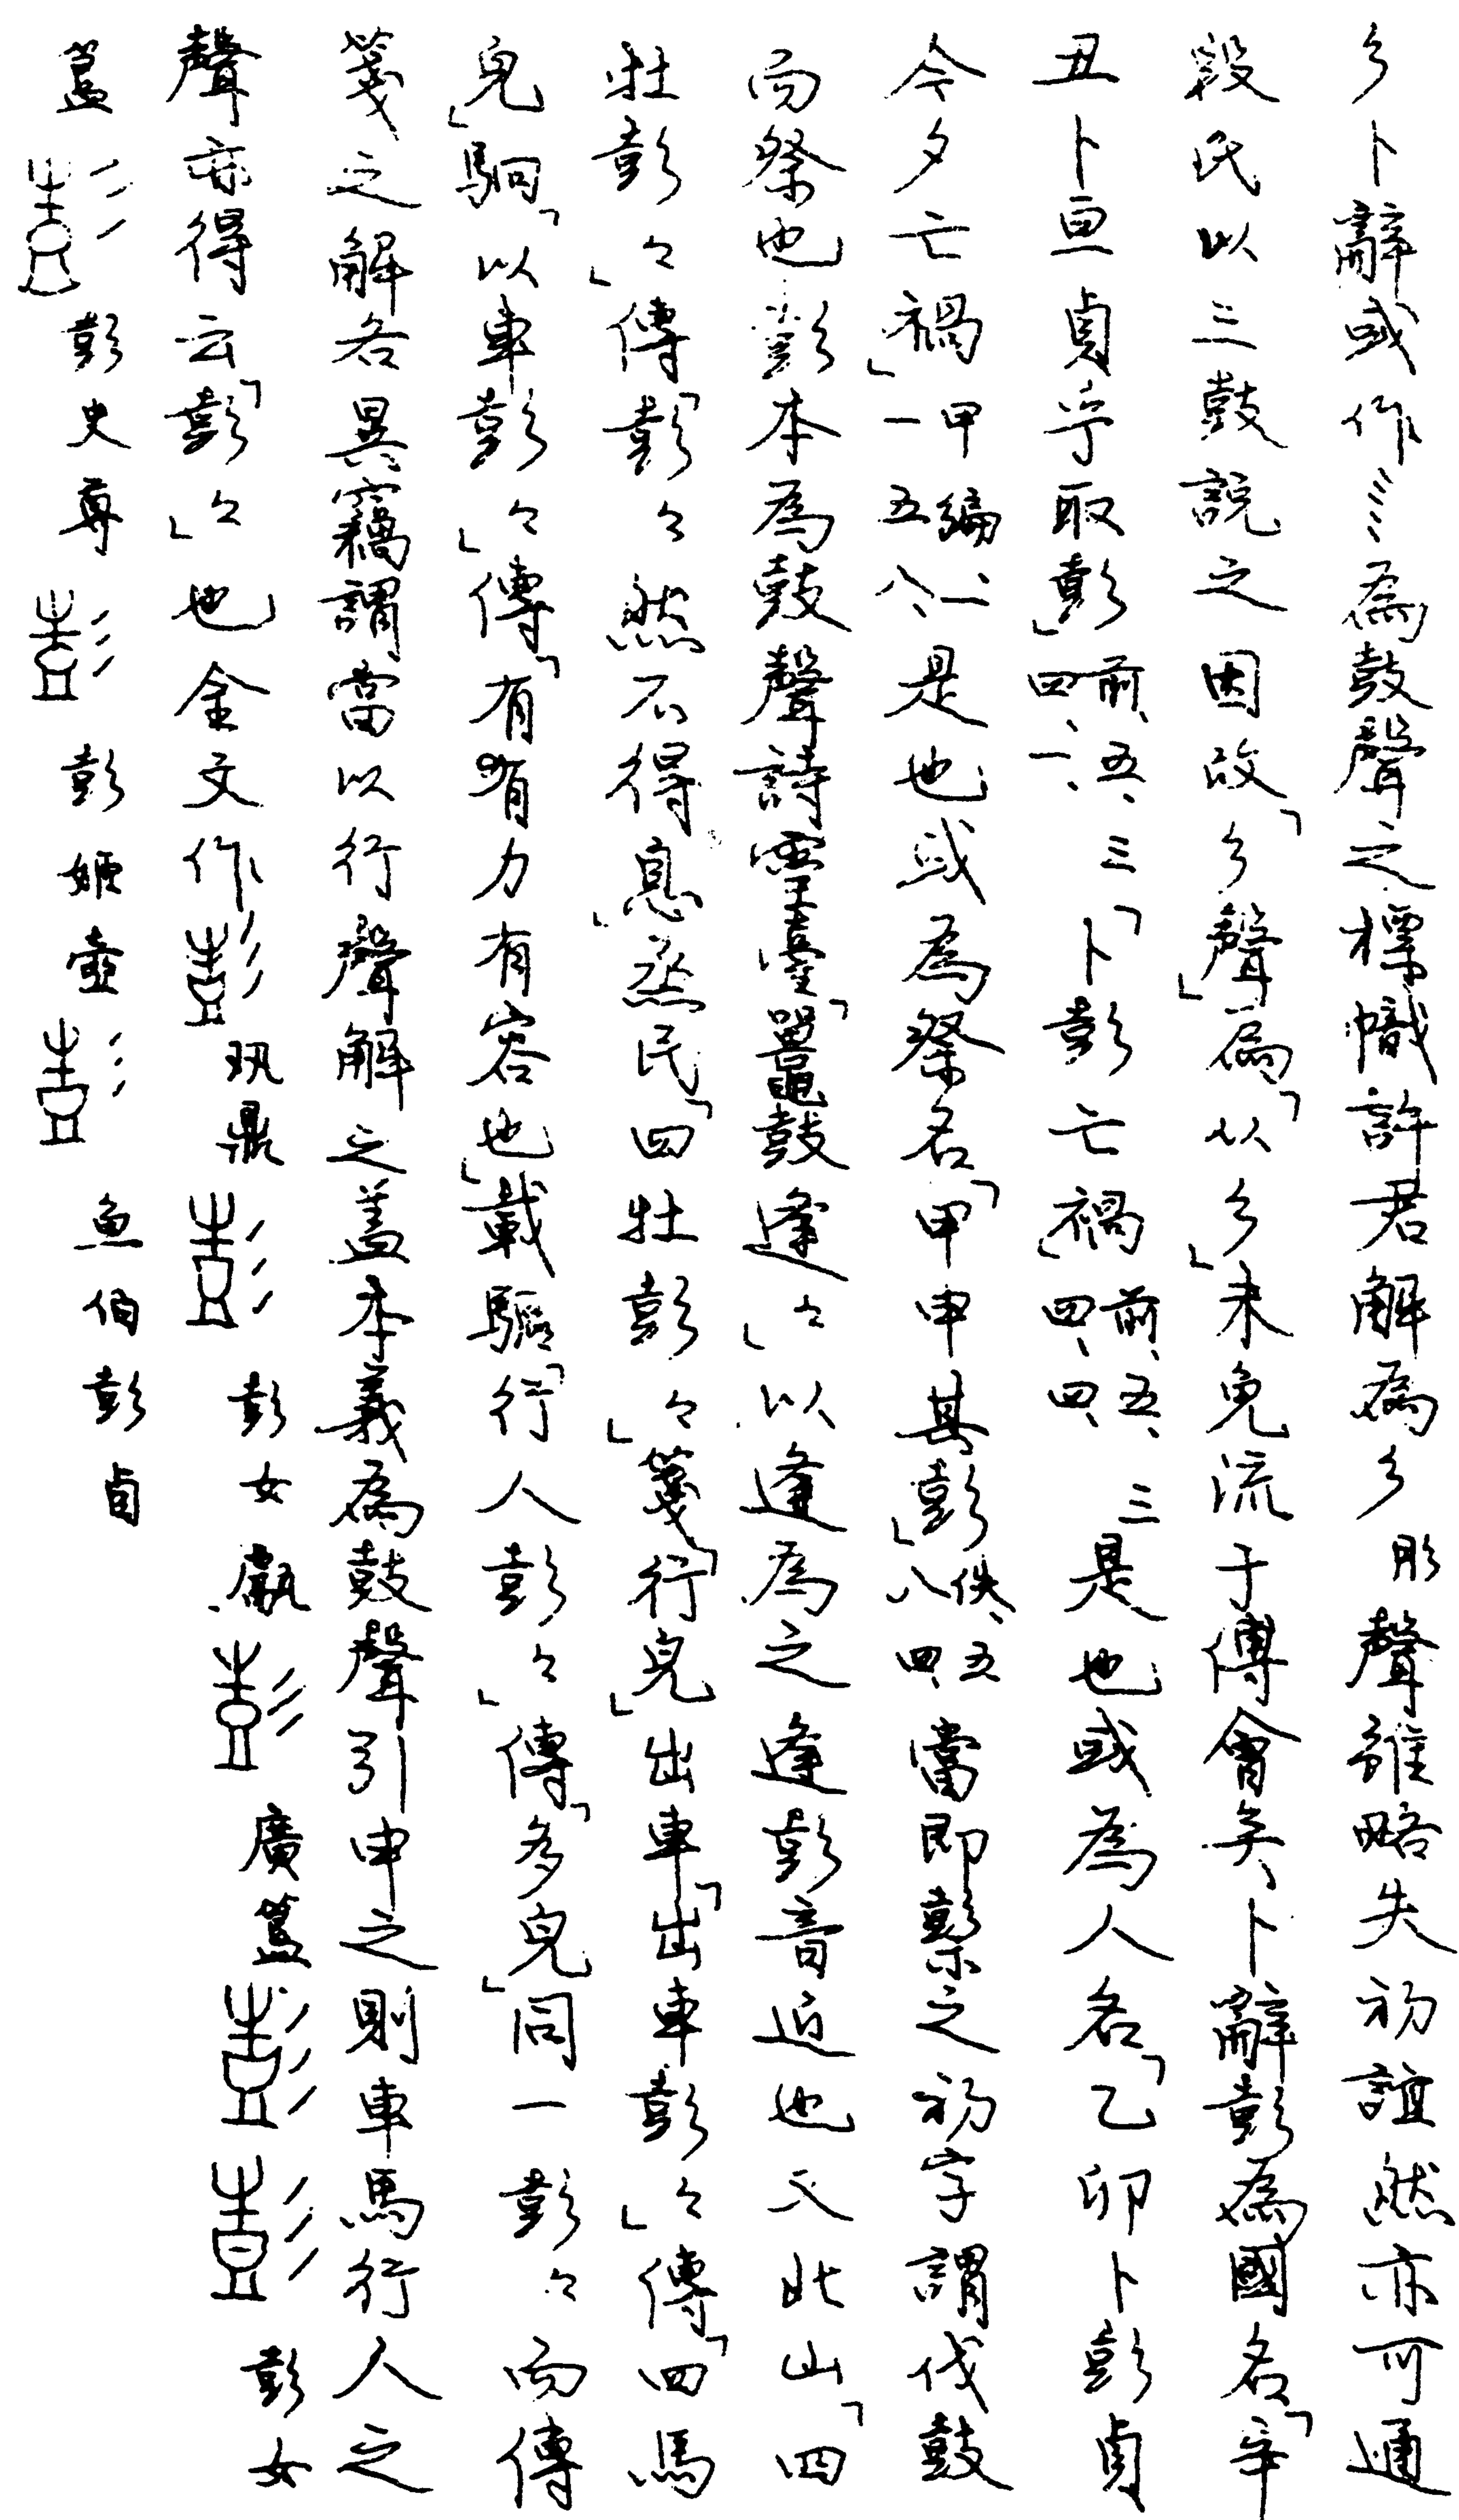 彡卜辭或作彡為鼓聲之標幟許君解為彡彤聲雖略失初誼然亦可通
段氏以三鼓說之因改「彡聲」為「以彡」未免流于傅會矣卜辭彭為國名「辛
丑卜亘貞乎取彭」前、五、三四、一、「卜彭亡禍」前、五、三四、四、是也或為人名「乙卯卜彭貞
今夕亡禍」甲編一一五八是也或為祭名「甲申其彭」佚、五八四當即之初字謂伐鼓
而祭也彭本為鼓聲詩靈臺「鼉鼓逢々」以逢為之逢彭音近也又北山「四
牡彭々」傳「彭々然不得息」烝民「四牡彭々」箋「行皃」出車「出車彭々」傳「四馬
皃」駉「以車彭々」傳「有有力有容也」載驅「行人彭々」傳「多皃」同一彭々而傳
箋之解各異竊謂當以行聲解之蓋本義為鼓聲引申之則車馬行人之
聲亦得云「彭々」也金文作彭鼎彭彭女甗彭廣簋彭彭彭女
簋彭彭史尊彭彭姬壺彭魚伯彭卣